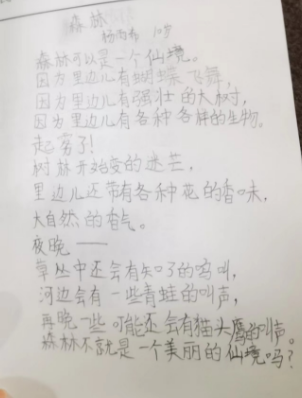 森林
10岁
森林可以是一个仙境。
因为里边儿有蝴蝶飞舞,
因为里边儿有强壮的大树,
因为里边儿有各种各样的生物。
起雾了!
树林开始变的迷茫,
里边儿还带有各种花的香味,
大自然的香气。
夜晚——
草丛中还会有知了的鸣叫,
河边会有一些青蛙的叫声,
再晚一些可能还会有猫头鹰的叫声。
森林不就是一个美丽的仙境吗?